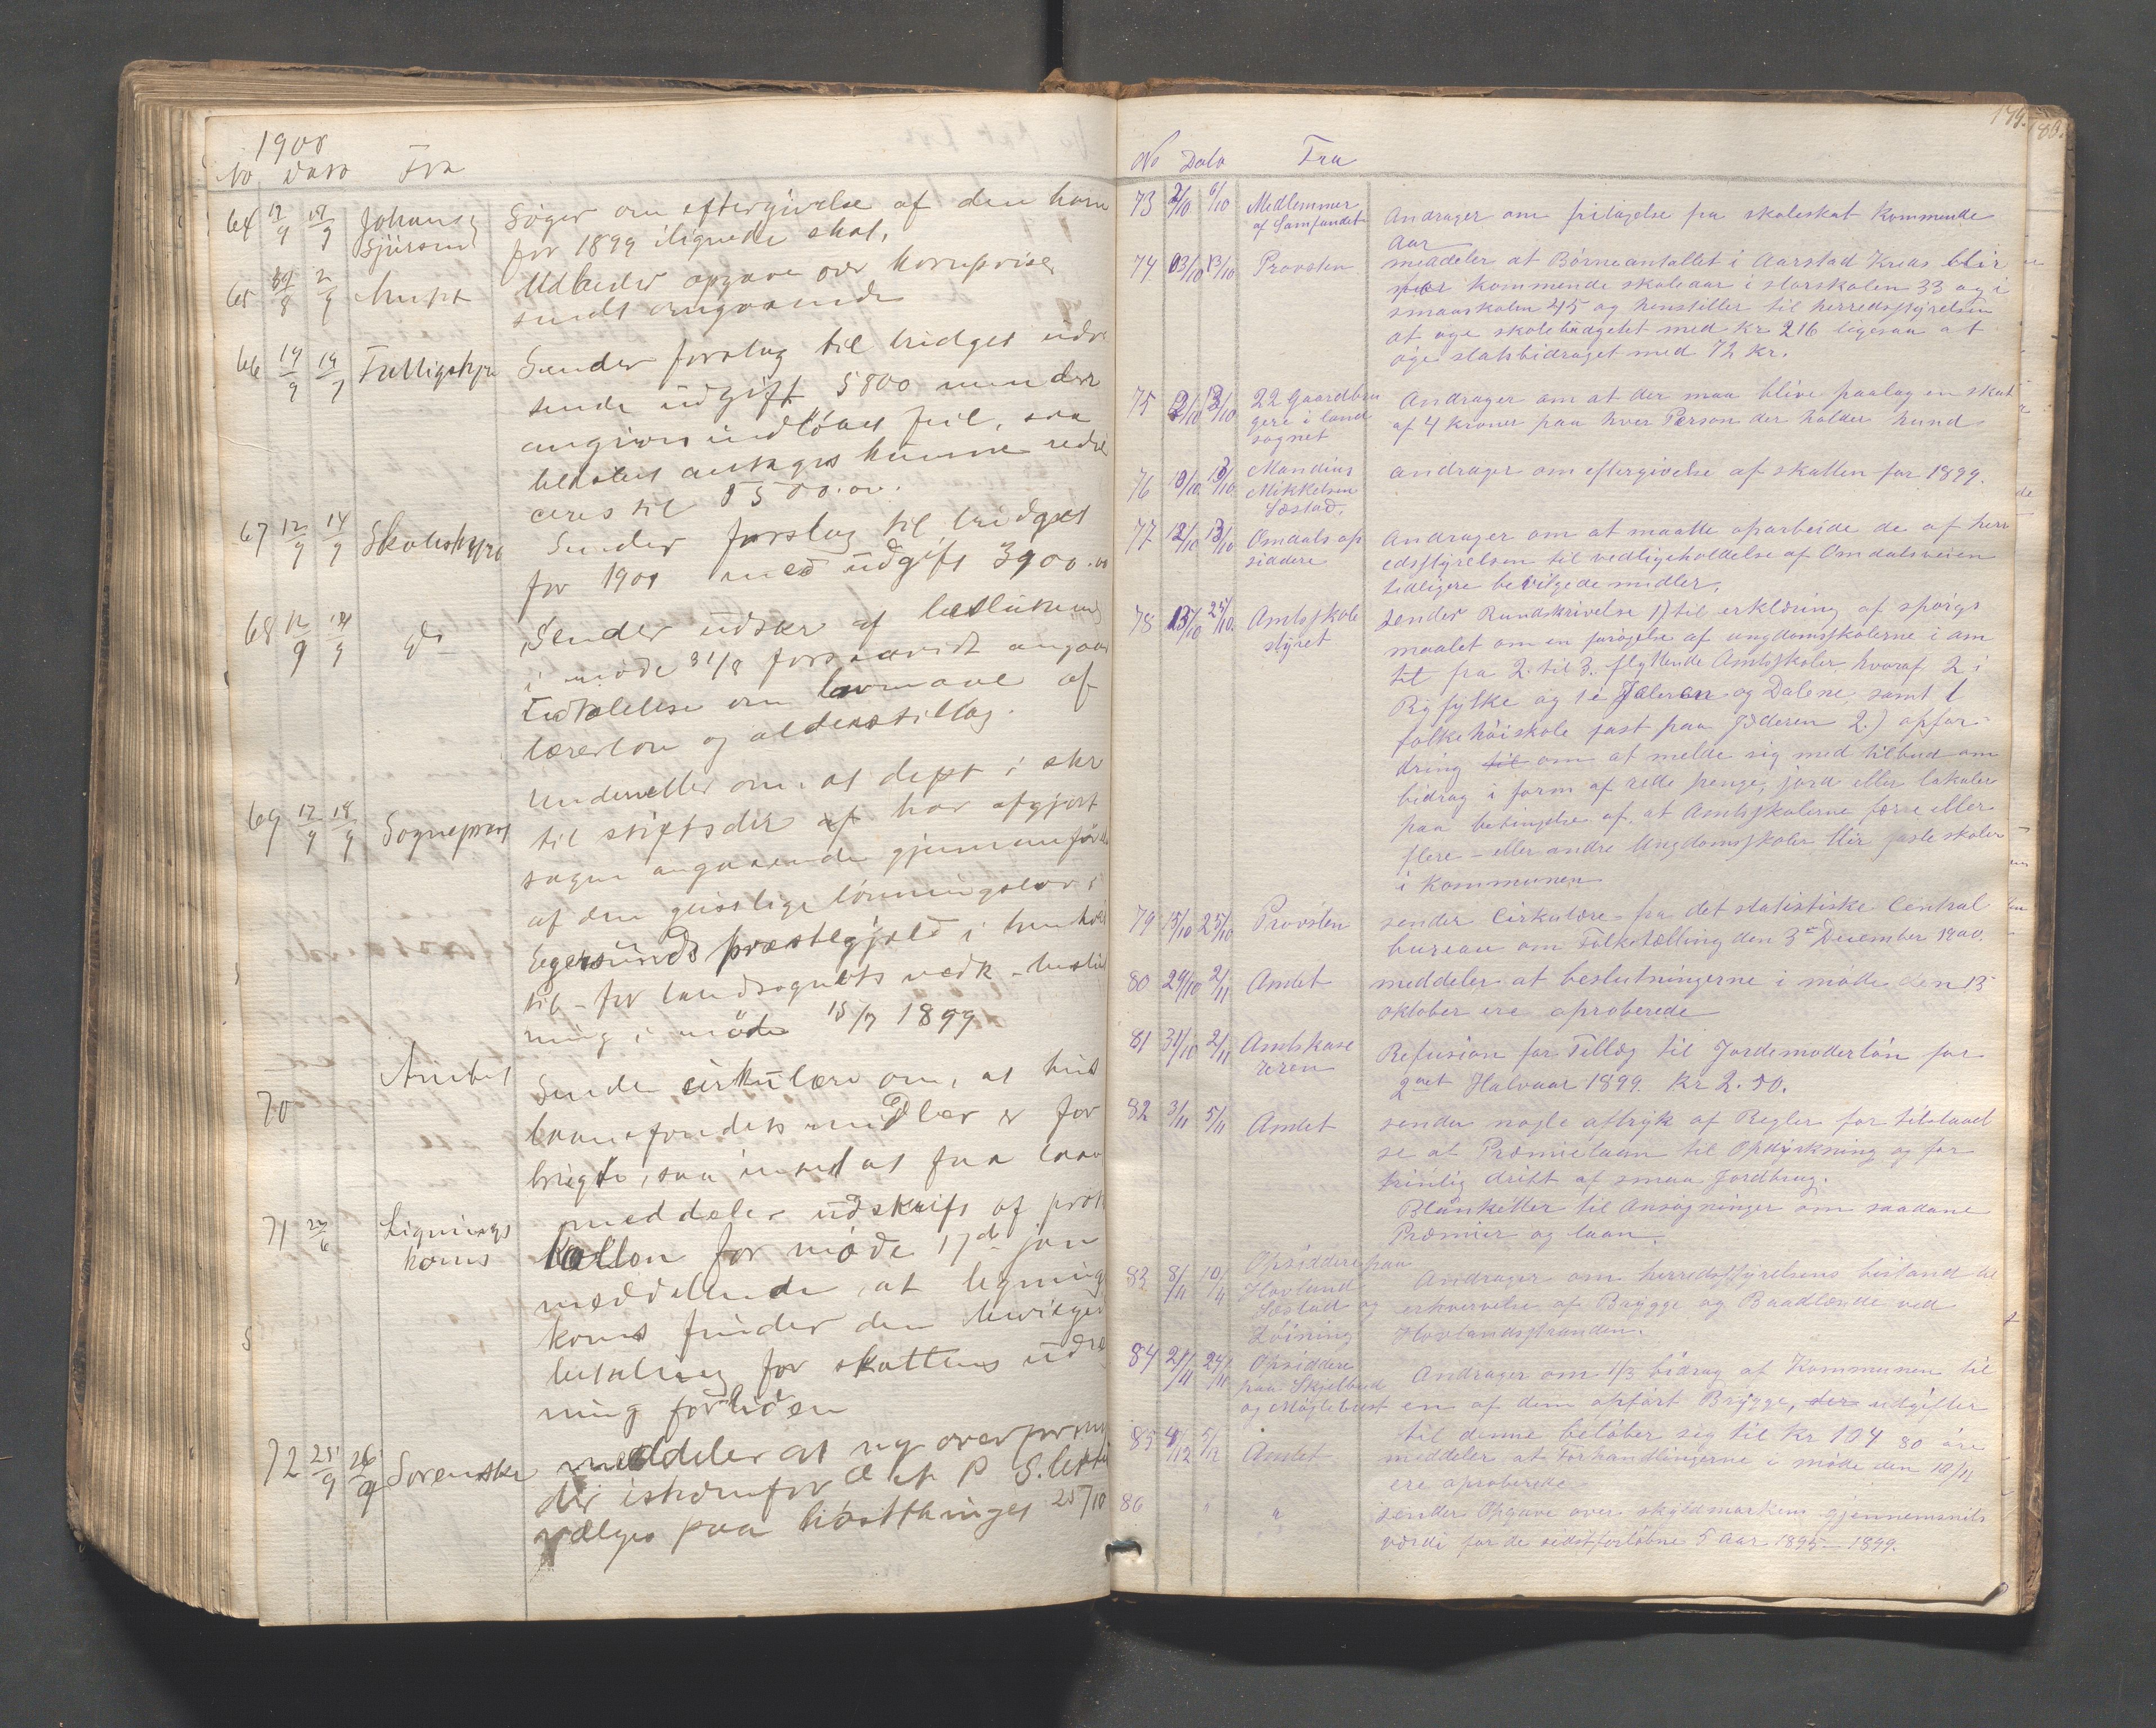 1900
No Dato Fra
64 17/9 18/9 Johan Sjursen Søger om eftergivelse af den ham
for 1899 ilignede skat.
65 30/8 2/9 Amtet Udbeder opgave over kornpriser
sendt angaaende
66 14/9 14/9 Fattigstyre Sender forslag til budget udvi
sende udgift 5800 mindre
angiven indtægt feil, saa
beløbet antages kunne redu
ceres til 5500.00.
67 12/9 14/9 Skolestyre Sender forslag til budget
for 1901 med udgift 3900.00
68 12/9 14/9 do Sender udskr af beslutning
i møde 31/8 forsaavidt angaar
Udtalelse om lovmæs af
lærerløn og alderstillæg.
69 12/9 18/9 Sogneprest Underretter om, at dept i skr
til stiftsdir har afgjort
sagen angaaende gjennemføre
af den geistlige lønningslov i
Egersunds præstegjeld i henhold
til for landsognets vedk beslut
ning i møde 15/7 1899
70 Amtet Sender cirkulære om, at hus
laanefondets midler er for
brugte, saa umuel at faa laan
71 Lignings koms meddeler udskrift af proto
kollen for møde 17de jan
meddelende, at ligning
koms finder den bevilgede
betaling for skattens udreg
ning for liden
72 25/9 26/9 Sorenskr meddeler at ny overformyn
der istedenfor
vælges paa høstthinget 25/10
179. 180.
No Dato Fra
73 2/10 6/10 Medlemmer af Samfundet Andrager om fritagelse fra skoleskat kommende
Aar
74 13/10 13/10 Provsten meddeler at Børneantallet i Aarstad Kreds blir
kommende skoleaar i storskolen 33 og i
smaaskolen 45 og henstiller til herredsstyrelsen
at øge skolebudgetet med kr 216 ligesaa at
øge statsbidraget med 72 kr.
75 2/10 13/10 22 Gaardbru gere i land sognet Andrager om at der maa blive paalag en skat
af 4 kroner paa hver Person der holder hund.
76 9/10. 13/10. Mandius Mikkelsen Sæstad. andrager om eftergivelse af skatten for 1899.
77 12/10 13/10 Omdals op siddere Andrager om at maatte oparbeide de af herr
edsstyrelsen til vedligeholdelse af Omdalsveien
tidligere bevilgede midler.
78 13/10 25/10. Amtsskole styret sender Rundskrivelse 1) til erklæring af spørgs
maalet om en forøgelse af ungdomsskolerne i am
tet fra 2 til 3 flyttende Amtsskoler, hvoraf 2 i
Ryfylke og 1 i Jæleren og Dalene, samt 1
folkehøiskole fast paa Jæderen 2.) opfor-
dring til om at melde sig med tilbud om
bidrag i form af rede penge, jord eller lokaler
paa betingelse af, at Amtsskolerne færre eller
flere - eller andre Ungdomsskoler blir faste skoler
i Kommunen
79 15/10 25/10 Provsten sender Cirkulære fra det statistiske Central
bureau om Folketælling den 3de December 1900.
80 29/10 2/11 Amtet meddeler at beslutningerne i møde den 13
oktober ere aproberede
81 31/10 2/11 Amtskasse reren Refusion for Tillæg til Jordemoderløn for
2net Halvaar 1899. Kr 2.50.
82 3/11 5/11 Amtet sender nogle aftryk af Regler for tilstaael
se af Præmielaan til Opdyrkning og for
trinlig drift af smaa Jordbrug.
Blanketter til Ansøgninger om saadane
Præmier og laan.
83 8/11 10/11 Opsiddere paa Hovland Sæstad og Løining Andrager om herredsstyrelsens bistand til
erhvervelse af Brygge og Baadlænde ved
Hovlandsstranden.
84 21/11 24/11 Opsiddere paa Skjelbred og Møglebust Andrager om 1/3 bidrag af Kommunen til
en af dem opført Brygge, der udgifter
til denne beløber sig til Kr 104 80 øre
85 4/12 5/12 Amtet meddeler at Forhandlingerne i møde den 10/11
ere aproberede
86 " " sender Opgave over skyldmarkens gjennemsnits
værdi for de sidst forløbne 5 Aar 1895–1899.